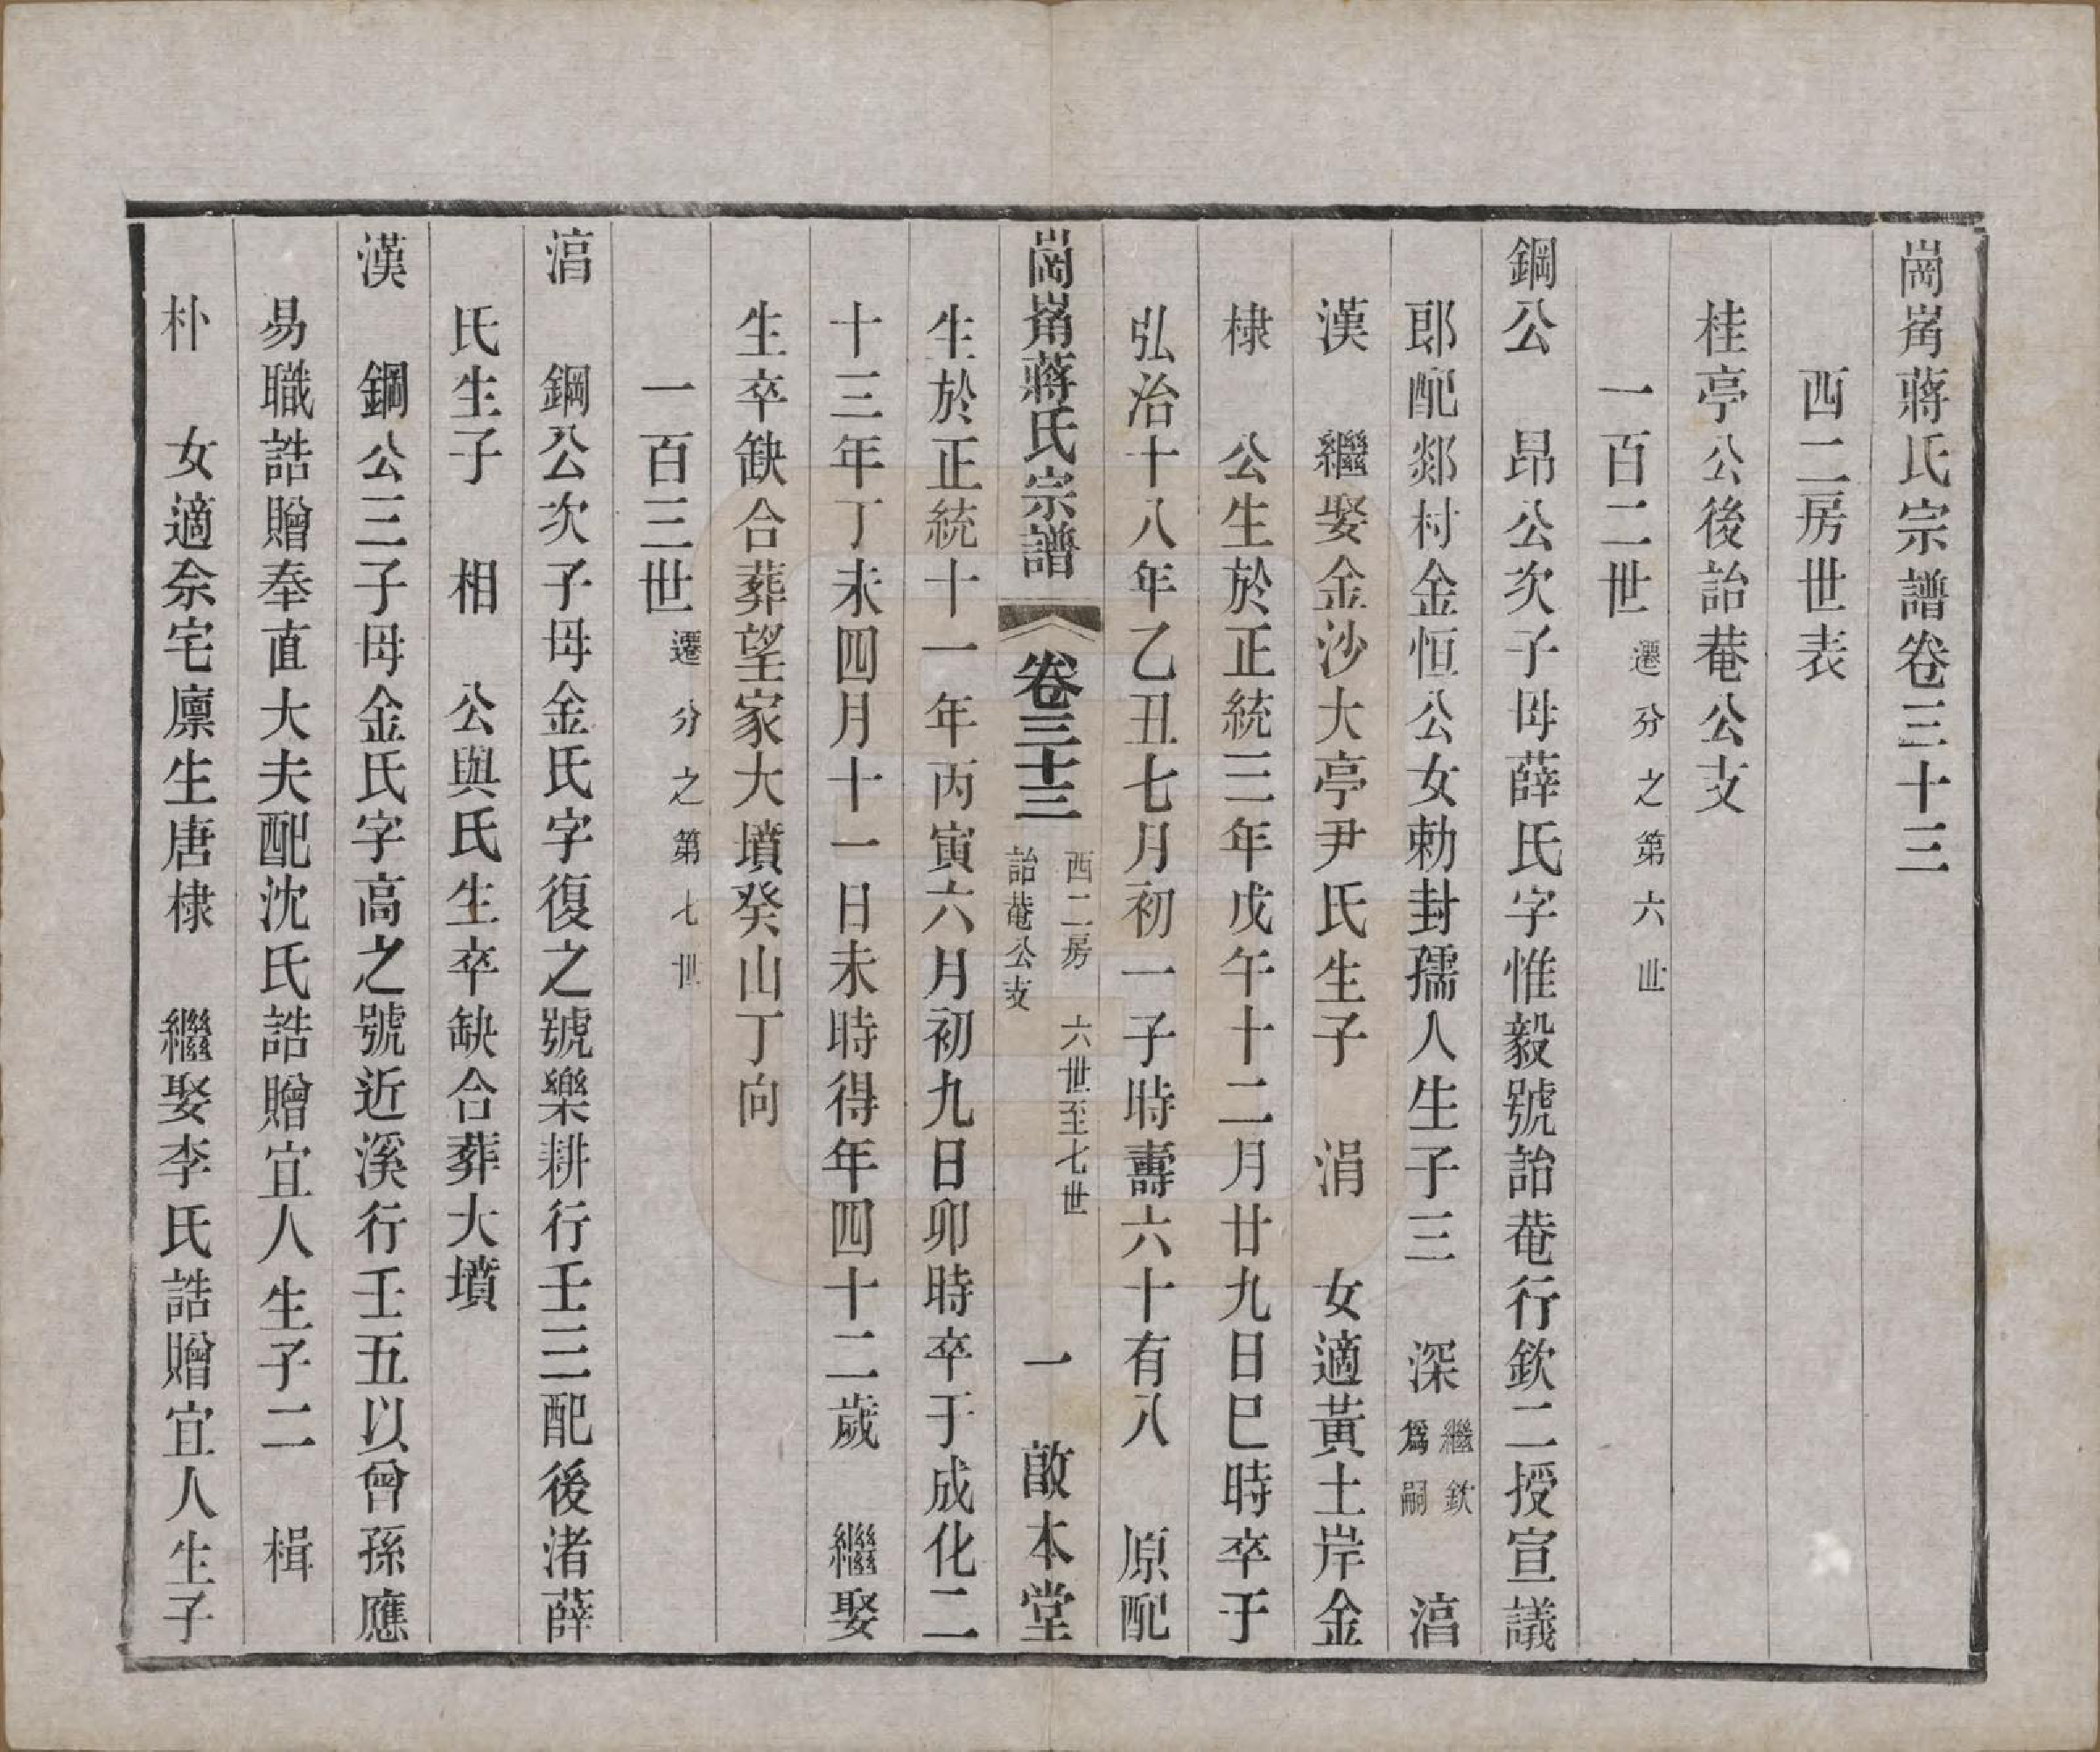 崗㟁蔣氏宗譜卷三十三
西二房世表
桂亭公後詒菴公支
一百二世遷分之第六世
鋼公　昂公次子母薛氏字惟毅號詒菴行欽二授宣議
郎配鄒村金恒公女勅封孺人生子三　深繼欽爲嗣　湻
漢　繼娶金沙大亭尹氏生子　涓　女適黃土岸金
棣　公生於正統三年戊午十二月廿九日巳時卒于
弘治十八年乙丑七月初一子時壽六十有八　原配
崗㟁蔣氏宗譜　卷三十三　西二房詒菴公支　六世至七世　一　啟本堂
生於正統十一年丙寅六月初九日卯時卒于成化二
十三年丁未四月十一日未時得年四十二歲　繼娶
生卒缺合葬望家大墳癸山丁向
一百三世遷分之第七世
湻　鋼公次子母金氏字復之號樂耕行壬三配後渚薛
氏生子　相　公與氏生卒缺合葬大墳
漢　鋼公三子母金氏字高之號近溪行壬五以曾孫應
易職誥贈奉直大夫配沈氏誥贈宜人生子二　楫
朴　女適佘宅廩生唐棣　繼娶李氏誥贈宜人生子